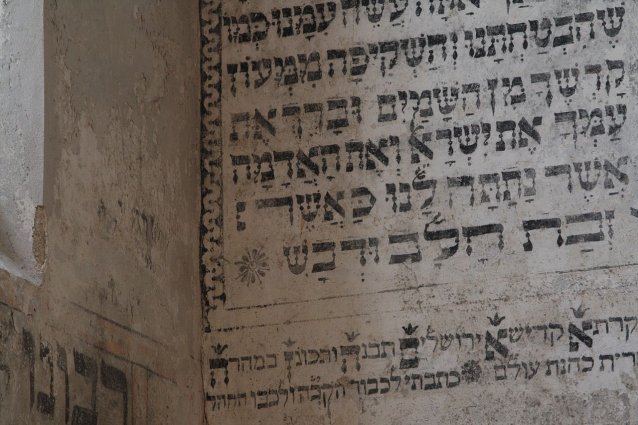 אַתָּה עֲשֵׂה עִמָּנוּ כְּמוֹ
שֶׁהִבְטַחְתָּנוּ הַשְׁקִיפָה מִמְּעוֹן
קָדְשְׁךָ מִן הַשָּׁמַיִם וּבָרֵךְ אֶת
עַמְּךָ אֶת יִשְׂרָאֵל וְאֵת הָאֲדָמָה
אֲשֶׁר נָתַתָּה לָנוּ כַּאֲשֶׁר
זָבַת חָלָב וּדְבָשׁ
קרתא קדישא ירושלים תבנה ותכונן במהרה
כהנת עולם כתבתי לכבוד הקבה ולכבו